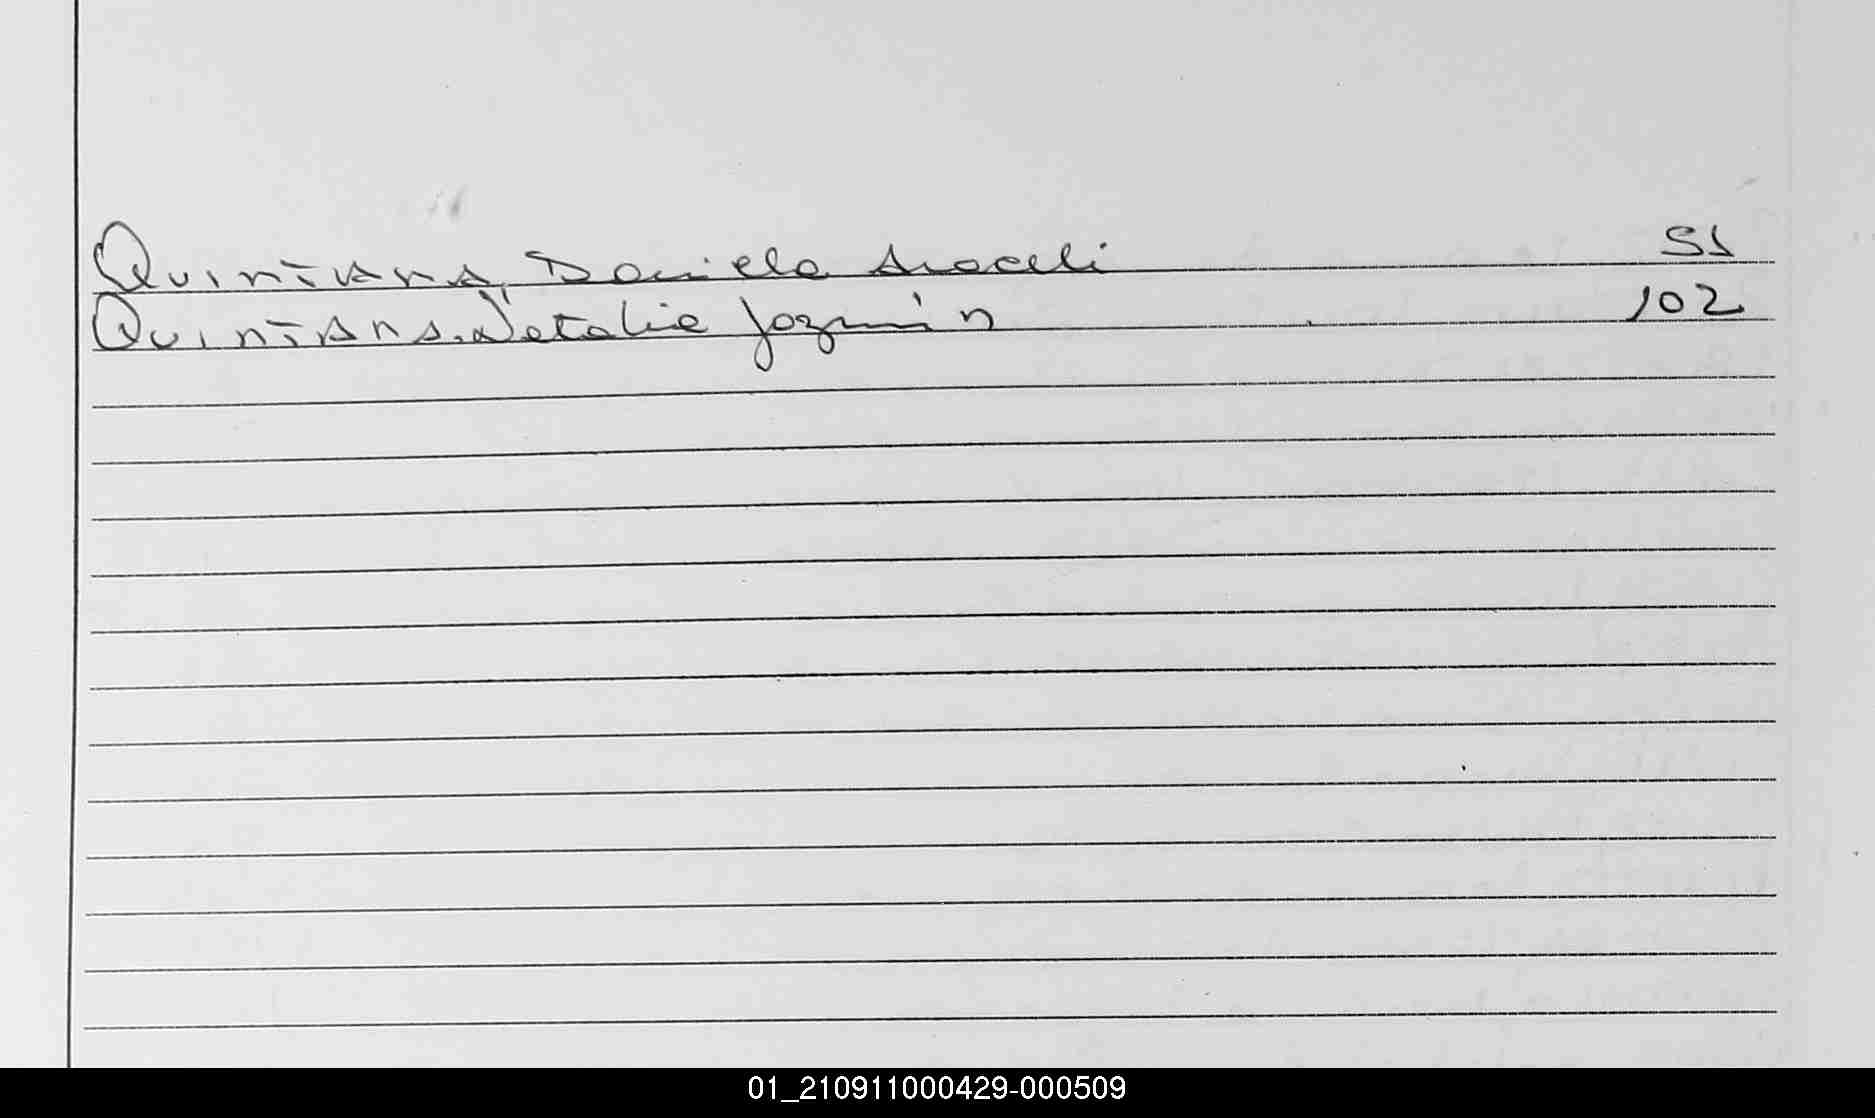 Quintana, Daniela Araceli 51
Quintana, Natalia Jazmín 102
01_210911000429-000509